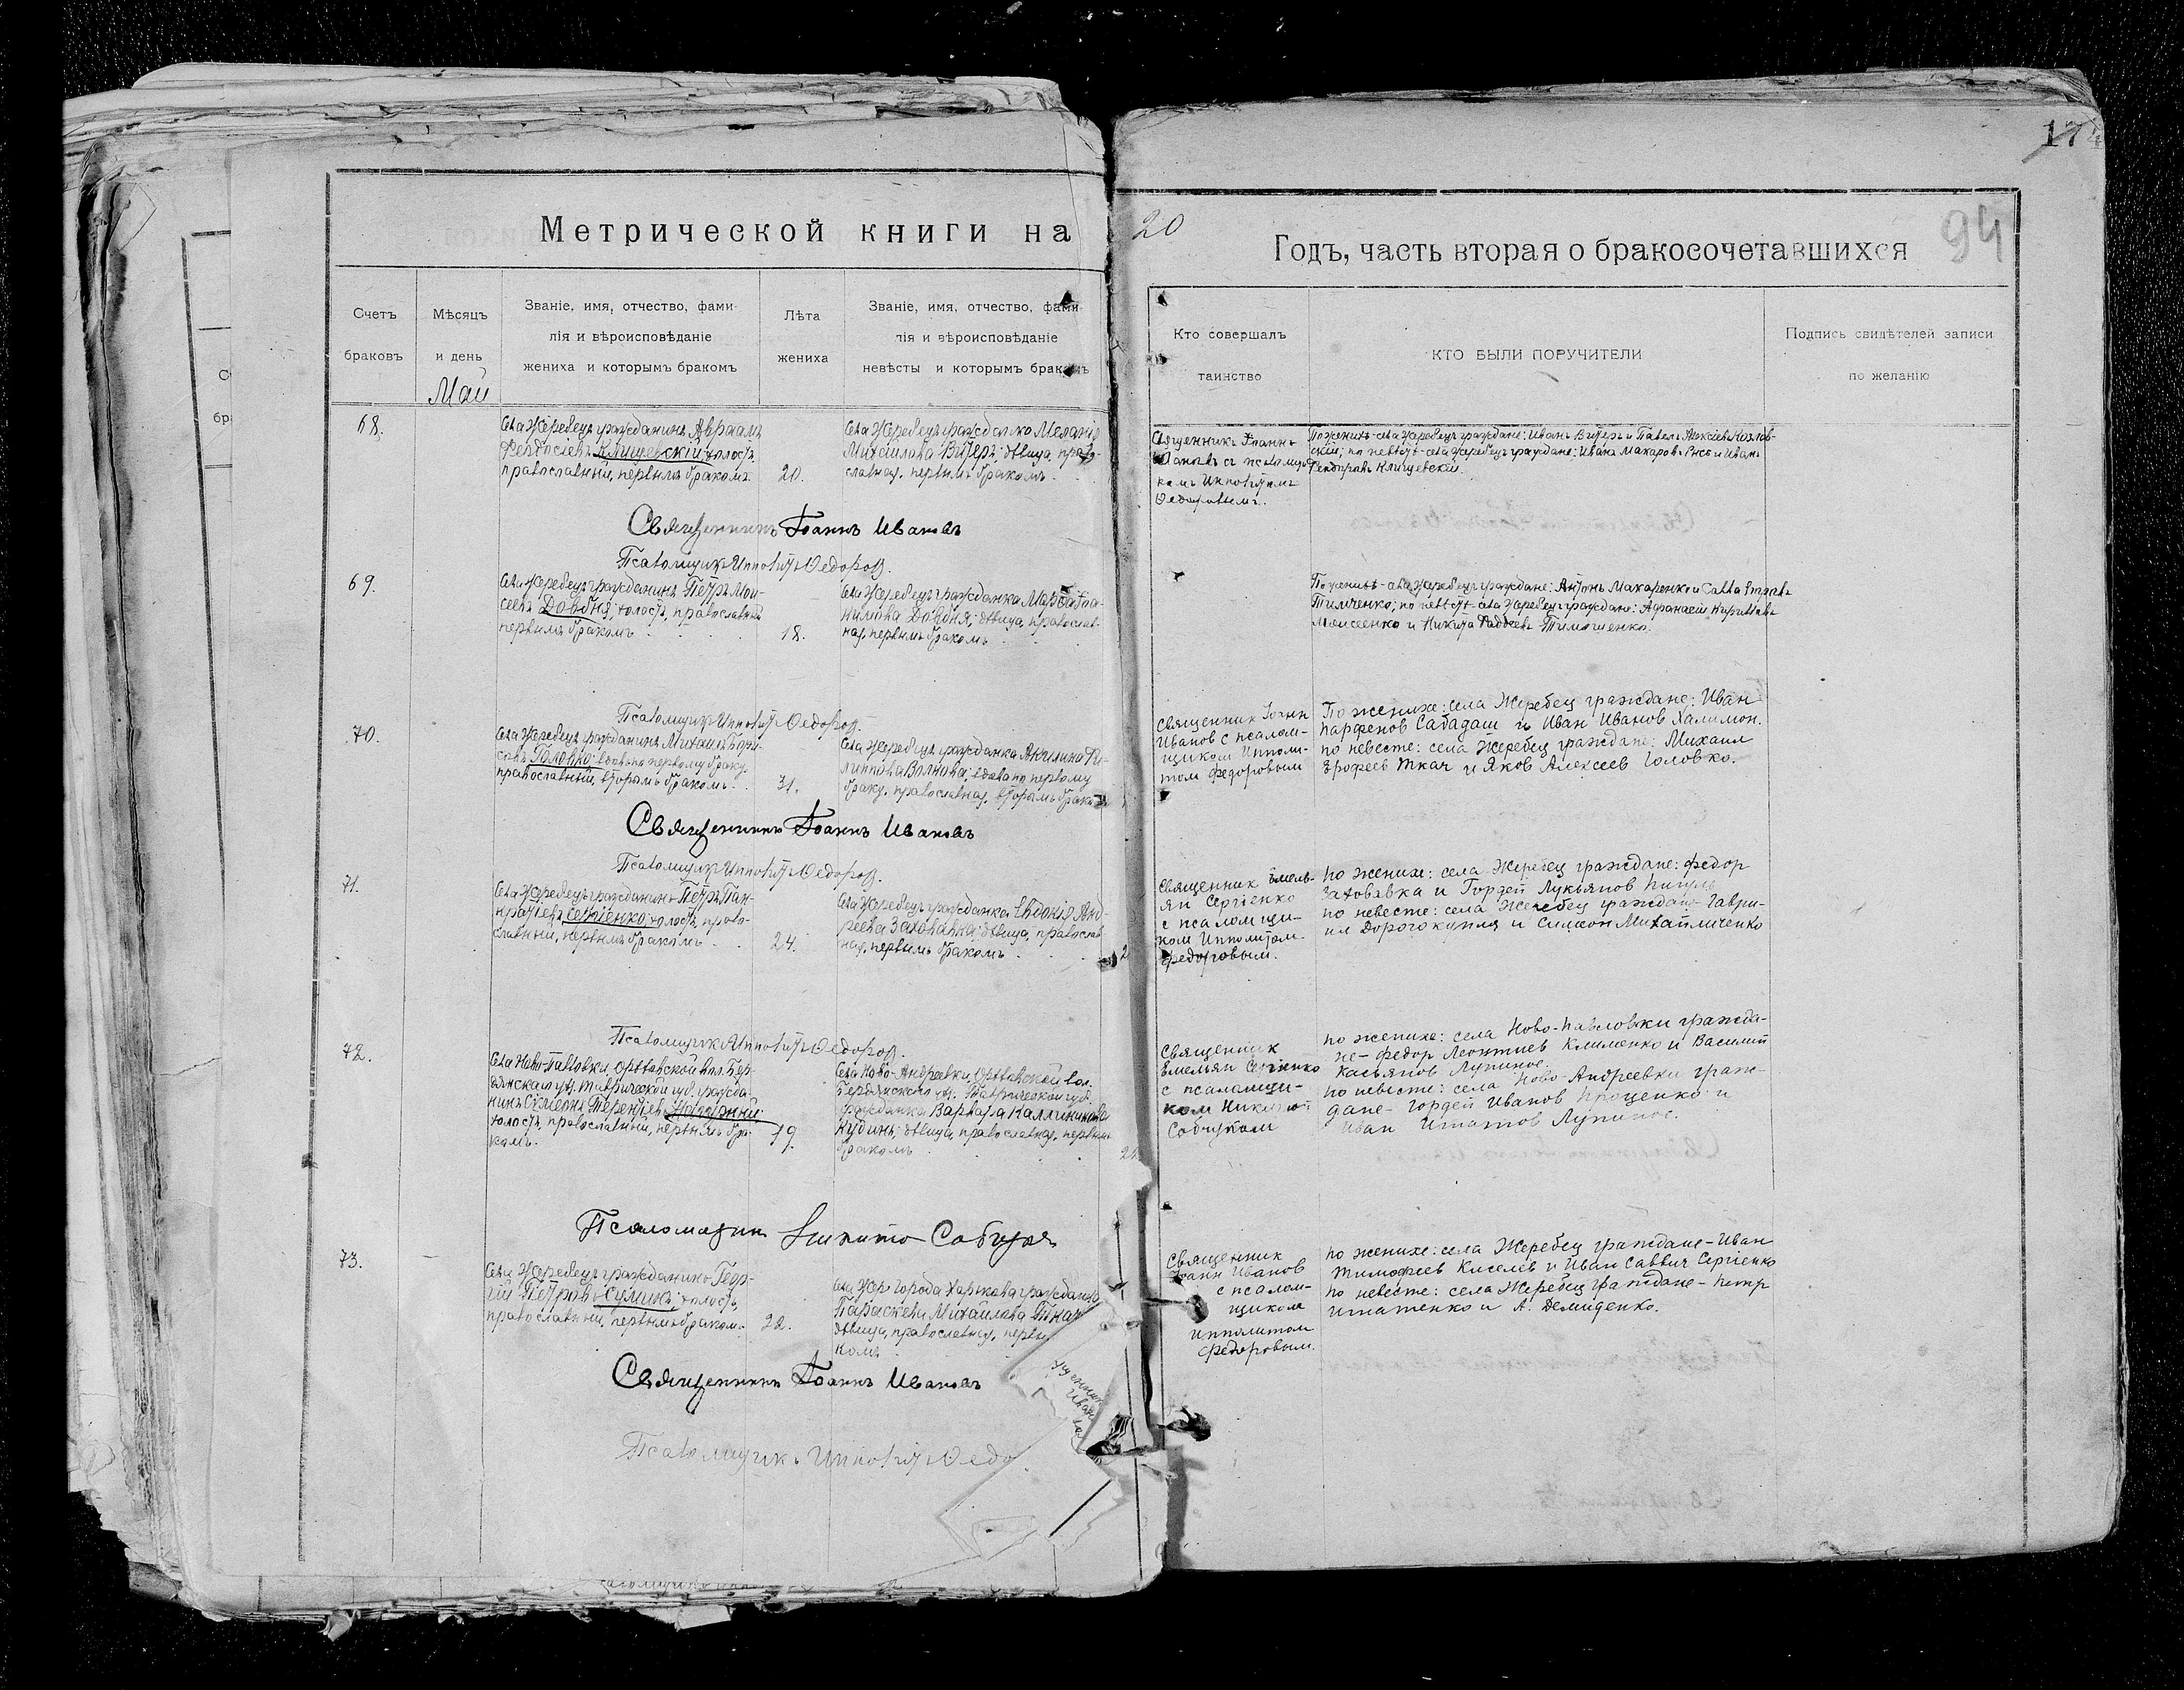 174
Метрической книги на
20
Годъ, часть вторая о бракосочетавшихся
94
Счетъ
браковъ
Мѣсяцъ
и день
Званіе, имя, отчество, фами-
лія и вѣроисповѣданіе
жениха и которымъ бракомъ
Лѣта
жениха
Званіе, имя, отчество, фами-
лія и вѣроисповѣданіе
невѣсты и которымъ бракомъ
Кто совершалъ
таинство
КТО БЫЛИ ПОРУЧИТЕЛИ
Подпись свидѣтелей записи
по желанію
Май
68.
Села Жеребецъ гражданинъ Авраамъ
Феодосіевъ Клищевскій холостъ,
православный, первымъ бракомъ.
20.
Села Жеребецъ гражданка Меланія
Михайлова Витеръ, дѣвица, право-
славная, первымъ бракомъ.
Священникъ Іоаннъ
Ивановъ съ псаломщи-
комъ Ипполитомъ
Ѳедоровымъ.
По женихѣ - села Жеребецъ граждане: Иванъ Витеръ и Павелъ Алексіевъ Козлов-
скій; по невѣстѣ - села Жеребецъ граждане: Иванъ Макаровъ и Иванъ
Феодоровъ Клищевскій.
Священникъ Іоаннъ Ивановъ
Псаломщикъ Ипполитъ Ѳедоров.
69.
Села Жеребецъ гражданинъ Петръ Мои-
сеевъ Довбня, холостъ, православный,
первымъ бракомъ
18.
Села Жеребецъ гражданка Марѳа
Довбня, дѣвица, православ-
ная, первымъ бракомъ
По женихѣ - села Жеребецъ граждане: Антонъ Макаренко и Савва
Тимченко; по невѣстѣ - села Жеребецъ граждане: Афанасій Кирилловъ
Моисеенко и Никита Фаддеевъ Тимошенко.
Псаломщикъ Ипполитъ Ѳедоров.
70.
Села Жеребецъ гражданинъ Михаилъ Бори-
совъ Головко, вдовъ по первому браку,
православный, вторымъ бракомъ.
31.
Села Жеребецъ гражданка Акилина Фи-
липпова Волкова, вдова по первому
браку, православная, вторымъ бракомъ
Священник Іоанн
Иванов с псалом-
щиком Иппoли-
том Федоровым
По женихе: села Жеребец граждане: Иван
Парфенов Сабадаш и Иван Иванов Халимон.
по невесте: села Жеребец граждане: Михаил
Ерофеев Ткач и Яков Алексеев Головко.
Священникъ Іоаннъ Ивановъ
Псаломщикъ Ипполитъ Ѳедоров.
71.
Села Жеребецъ гражданинъ Петръ Пан-
кратіевъ Сергіенко, холостъ, право-
славный, первымъ бракомъ
24.
Села Жеребецъ гражданка Евдокія Анд-
реева Заховавка, дѣвица, православ-
ная, первымъ бракомъ
2
Священник Емель-
ян Сергіенко
с псаломщи-
ком Ипполитом
Федоровым.
По женихе: села Жеребец граждане: Федор
Заховавка и Гордей Лукьянов
по невесте: села Жеребец граждане - Гаври-
ил Дорогокупля и Симеон Михайличенко
Псаломщикъ Ипполитъ Ѳедоров.
72.
Села Ново-Павловки, Орѣховской вол. Бер-
дянскаго уѣз. Таврической губ. гражда-
нинъ Симеонъ Терентіевъ
холостъ, православный, первымъ бра-
комъ.
19.
Села Ново-Андреевки, Орѣховской вол.
Бердянского уѣз. Таврической губ.
гражданка Варвара Каллиникова
Кудинъ, дѣвица, православная, первымъ
бракомъ
21
Священник
Емельян Сергіенко
с псаломщи-
ком Никитой
Собчуком
По женихе: села Ново-Павловки гражда-
не - Федор Леонтиев Клименко и Василий
Касьянов Лупинос.
по невесте: села Ново-Андреевки граж-
дане - Гордей Иванов Проценко и
Иван Игнатов Лупинос.
Псаломщик Никита Собчук
73.
Села Жеребецъ гражданинъ Геор-
гій Петровъ Сулима, холостъ,
православный, первымъ браком.
22.
города Харькова гражданка
Параскева Михайлова Ткач
дѣвица, православная, первы
комъ
Священник
Іоанн Иванов
с псалом-
щиком
Ипполитом
Федоровым.
По женихе: села Жеребец граждане - Иван
Тимофеев Киселев и Иван Саввич Сергіенко
по невесте: села Жеребец граждане - Петр
Игнатенко и А. Демиденко.
Священникъ Іоаннъ Ивановъ
Псаломщикъ Ипполитъ Ѳедо